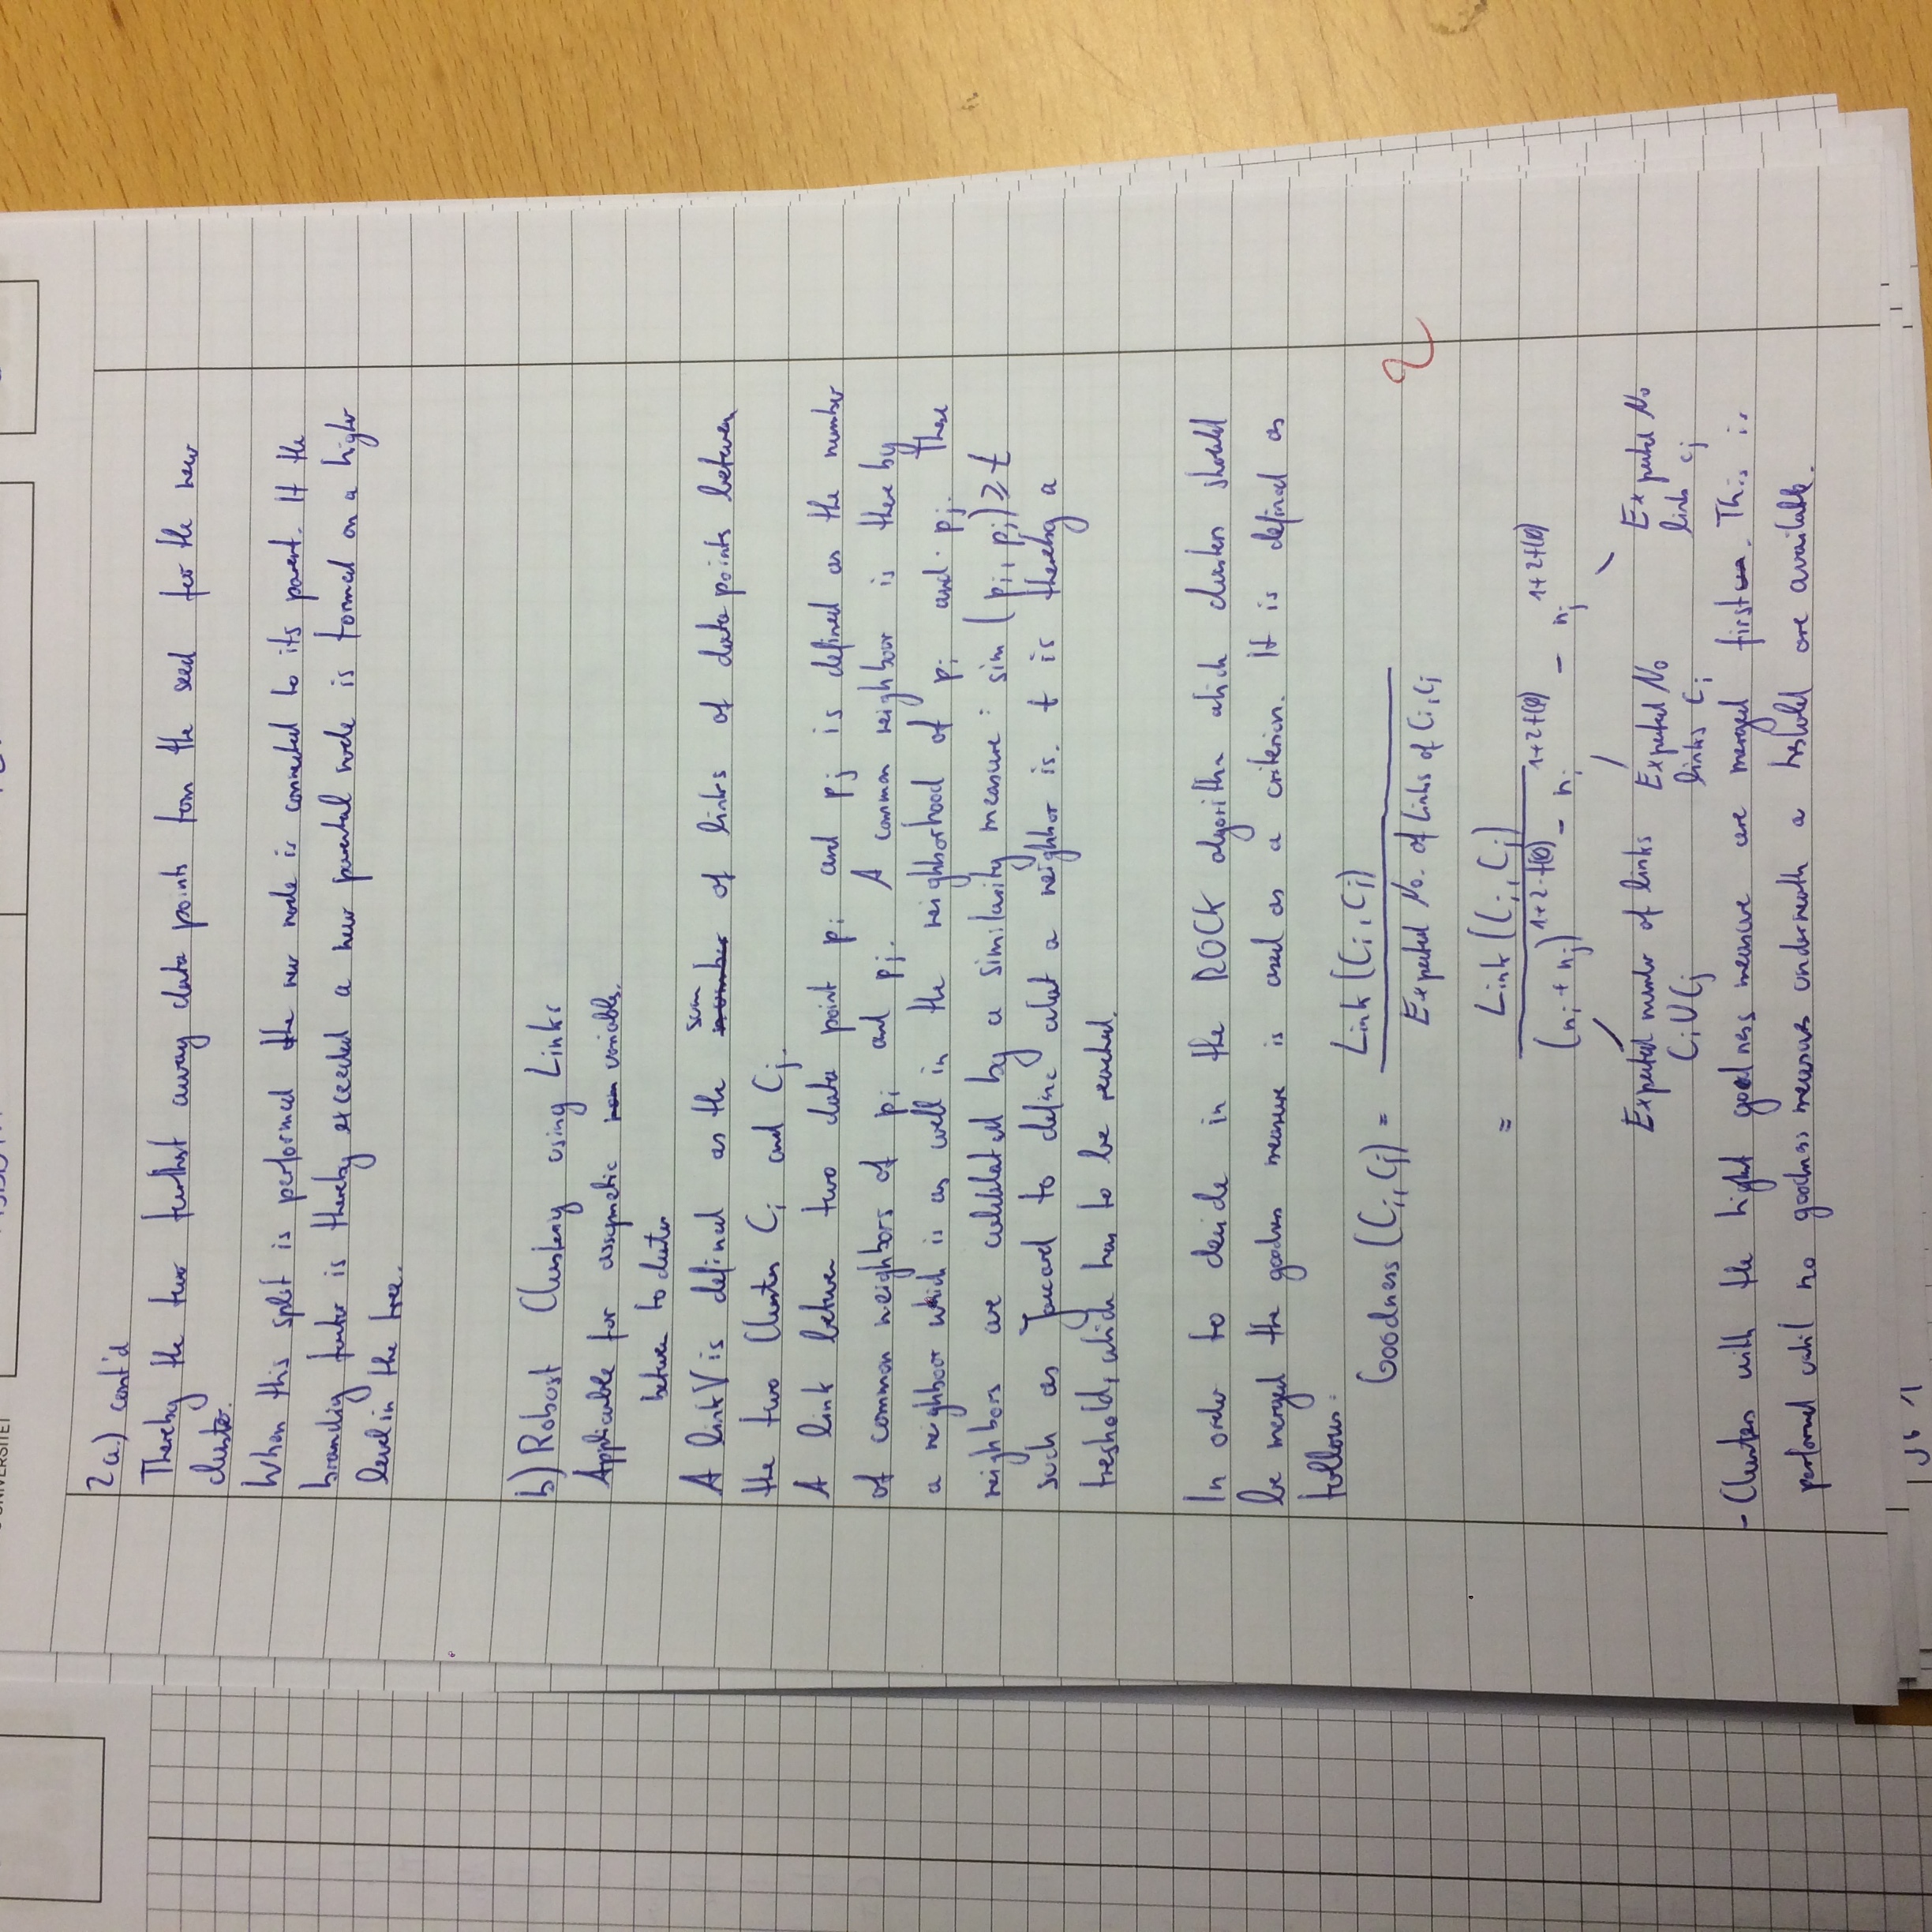 UNIVERSITET
2a.) cont'd
Thereby the two furthest away data points form the seed for the new
cluster.
When this split is performed the new node is connected to its parent. If the
branching factor is thereby exceeded a new parental node is formed on a higher
level in the tree.
b) Robust Clustering using Links
Applicable for assymetric variables.
between to cluster
A link V is defined as the sum of links of data points between
the two Cluster Ci and Cj.
A link between two data point pi and pj is defined as the number
of common neighbors of pi and pj. A common neighbour is thereby
a neighboor which is as well in the neighborhood of pi and pj. These
neighbors are calculated by a similarity measure: sim (pi, pj) ≥ t
such as Jaccard to define what a neighbor is. t is thereby a
treshold, which has to be reached.
In order to decide in the ROCK algorithm which clusters should
be merged the goodness measure is used as a criterion. It is defined as
follows:
Goodness (Ci, Cj) = Link (Ci, Cj)
Expected No. of Links of Ci, Cj
2
= Link (Ci, Cj)
(ni + nj)^1+2·f(θ) - ni^1+2f(θ) - nj^1+2f(θ)
Expected number of links Expected No Expected No
Ci U Cj links Ci link cj
- Clusters with the highest goodness measure are merged first. This is
performed until no goodness measures underneath a treshold are available.